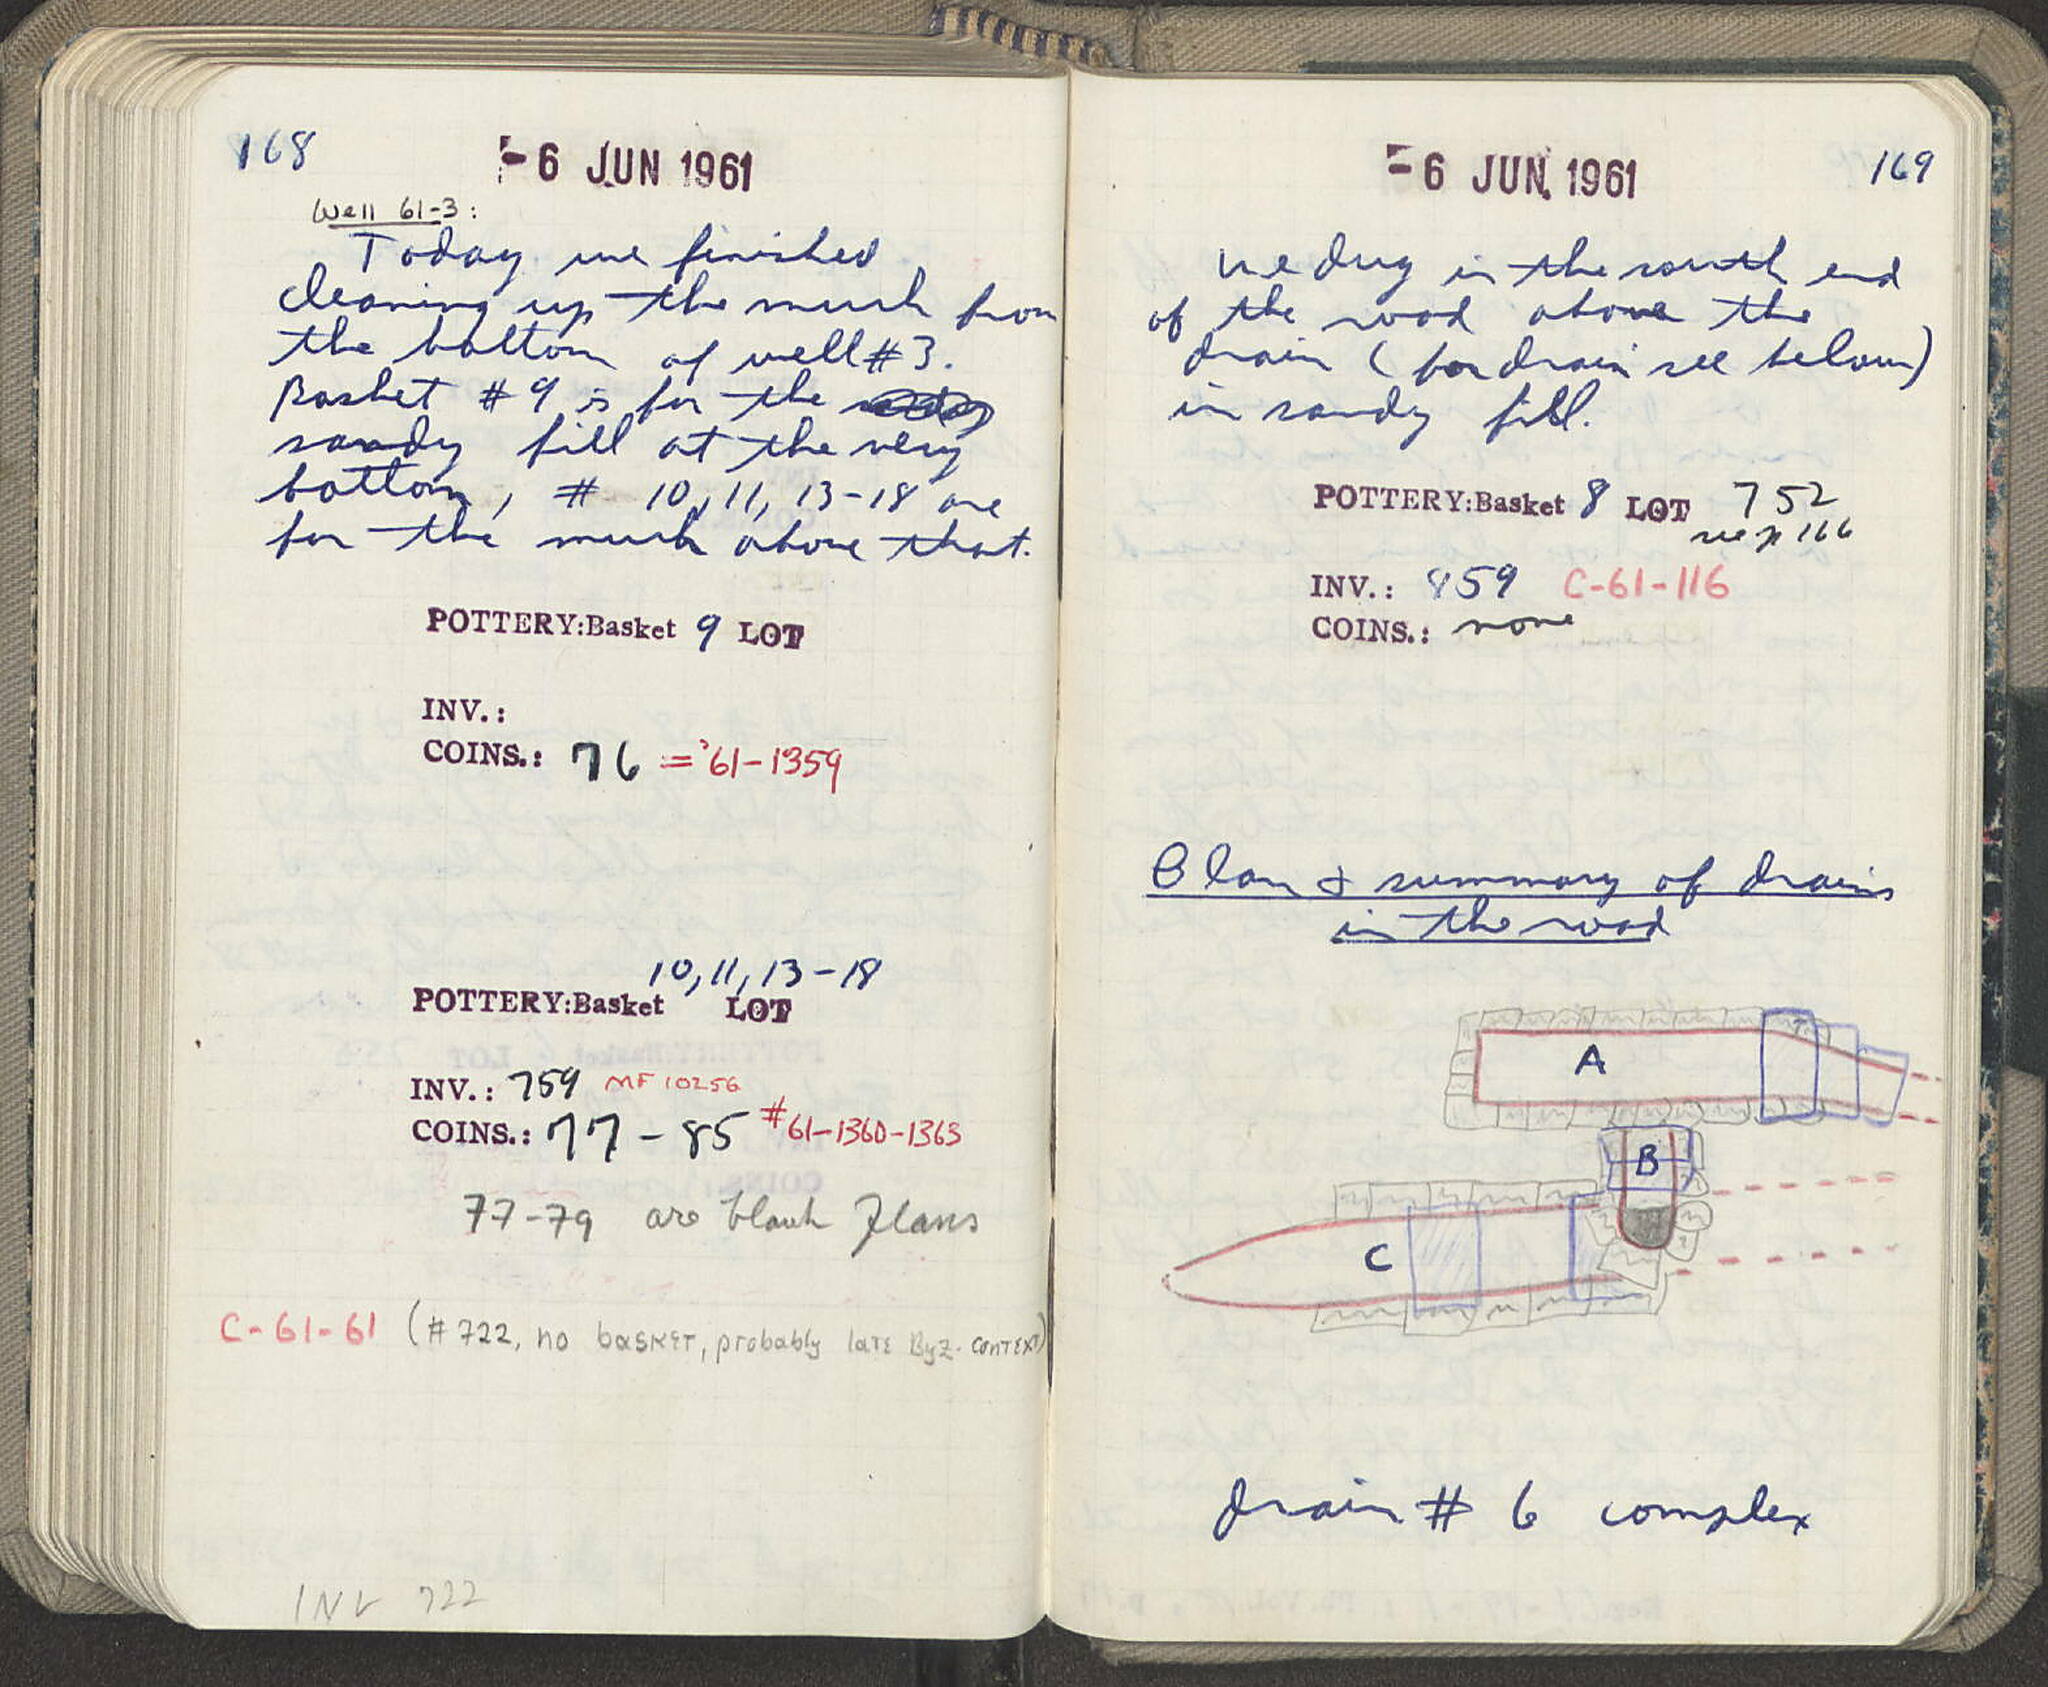 168
-6 JUN 1961
Well 61-3:
Today we finished
cleaning up the muck from
the bottom of well #3.
Basket #9 is for the
sandy fill at the very
bottom, # 10, 11, 13-18 are
for the muck above that.
POTTERY:Basket 9 LOT
INV.:
COINS.: 76 = '61-1359
10, 11, 13-18
POTTERY:Basket LOT
INV.: 759 MF 10256
COINS.: 77-85 #61-1360-1363
77-79 are blank flans
C-61-61 (#722, no basket, probably late Byz. context)
INV 722
-6 JUN 1961
169
We dug in the south end
of the road above the
drain (for drain see below)
in sandy fill.
POTTERY:Basket 8 LOT 752
see p 166
INV.: 859 C-61-116
COINS.: none
Plan & summary of drains
in the road
A
B
C
drain # 6 complex